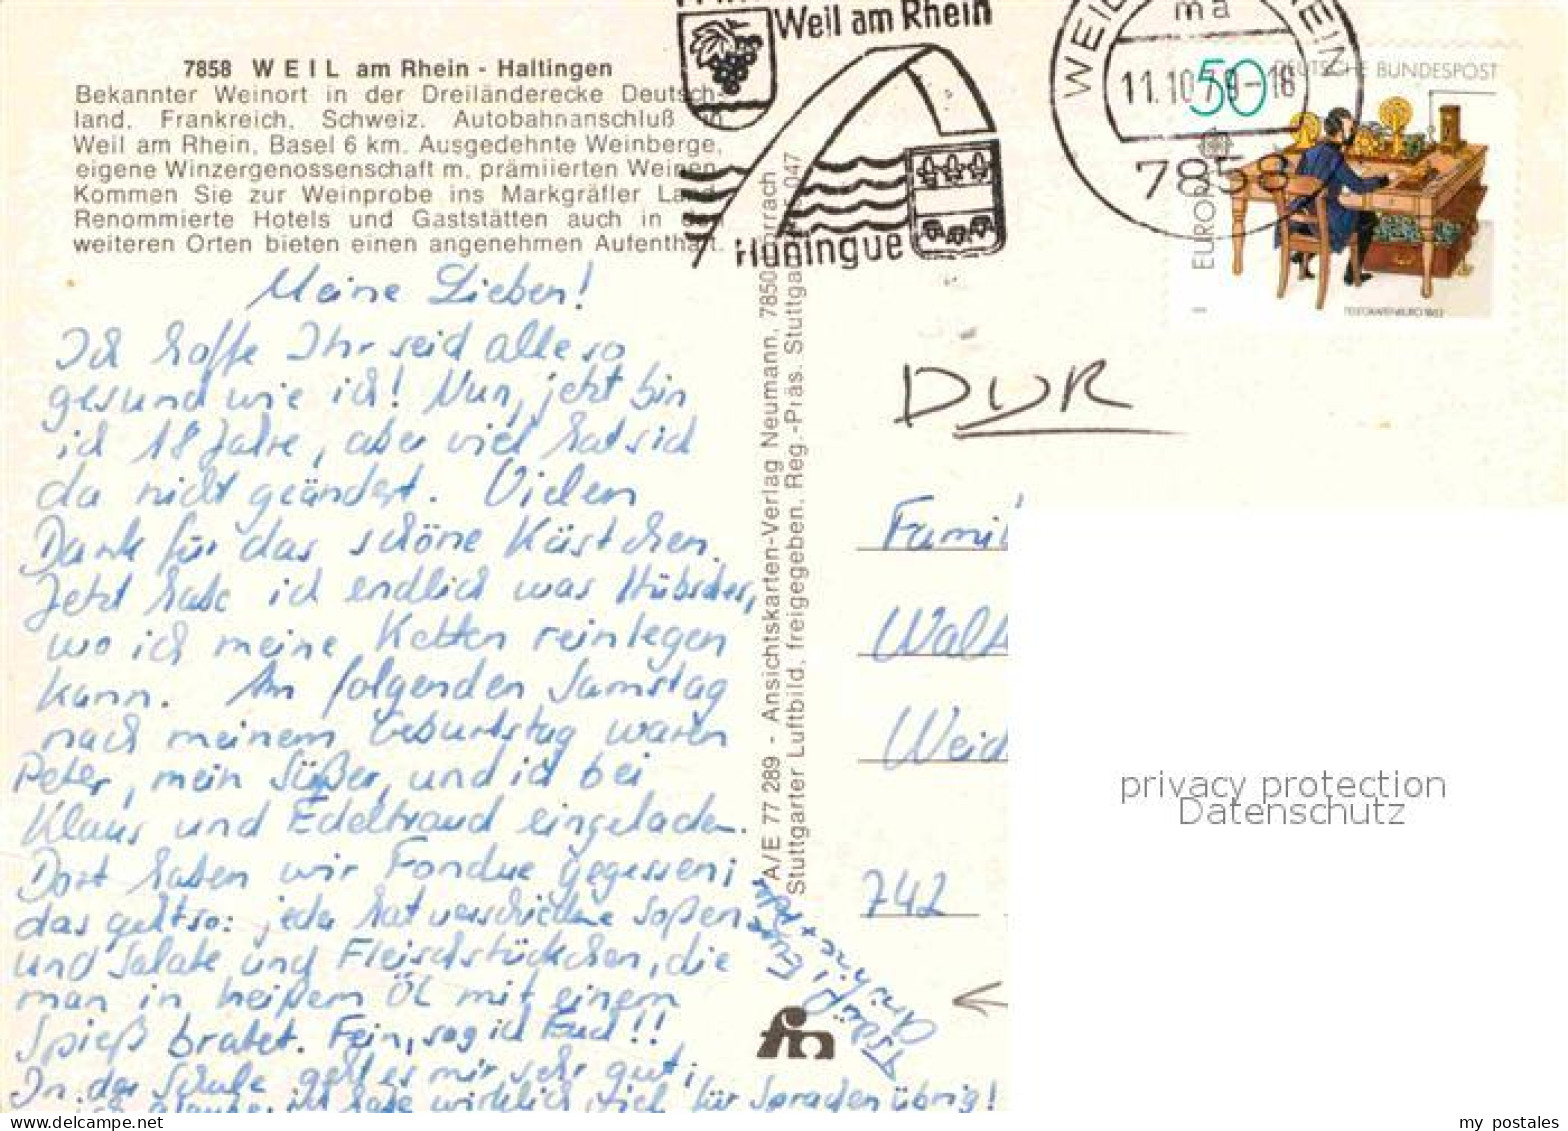 7858 WEIL am Rhein - Haltingen
Bekannter Weinort in der Dreiländerecke Deutsch-
land, Frankreich, Schweiz. Autobahnanschluß in
Weil am Rhein, Basel 6 km. Ausgedehnte Weinberge,
eigene Winzergenossenschaft m. prämiierten Weinen
Kommen Sie zur Weinprobe ins Markgräfler Land
Renommierte Hotels und Gaststätten auch in
weiteren Orten bieten einen angenehmen Aufenthalt.
Weil am Rhein
Hüningue
WEIL RHEIN
ma
11.10.79-18
7858
50
DEUTSCHE BUNDESPOST
EUROPA
TELEGRAFENBÜRO 1863
Meine Lieben!
Ich hoffe Ihr seid alle so
gesund wie ich! Nun, jetzt bin
ich 18 Jahre, aber viel hat sich
da nicht geändert. Vielen
Dank für das schöne Kästchen.
Jetzt habe ich endlich was Hübsches,
wo ich meine Ketten reinlegen
kann. Am folgenden Samstag
nach meinem Geburtstag waren
Peter, mein Süßer, und ich bei
Klaus und Edeltraud eingeladen.
Dort haben wir Fondue gegessen;
das geht so: jeder hat verschiedene Soßen
und Salate und Fleischstückchen, die
man in heißem Öl mit einem
Spieß bratet. Fein, sag ich Euch!!
In der Schule geht es mir sehr gut;
ich glaube, ich habe wirklich viel für Sprachen übrig!
Tschüß! Eure
+ Peter
A/E 77 289 - Ansichtskarten-Verlag Neumann, 7850 Lörrach
Stuttgarter Luftbild, freigegeben, Reg.-Präs. Stuttgart 047
fn
DUR
Famil
Walt
Weid
742
privacy protection
Datenschutz
my postales